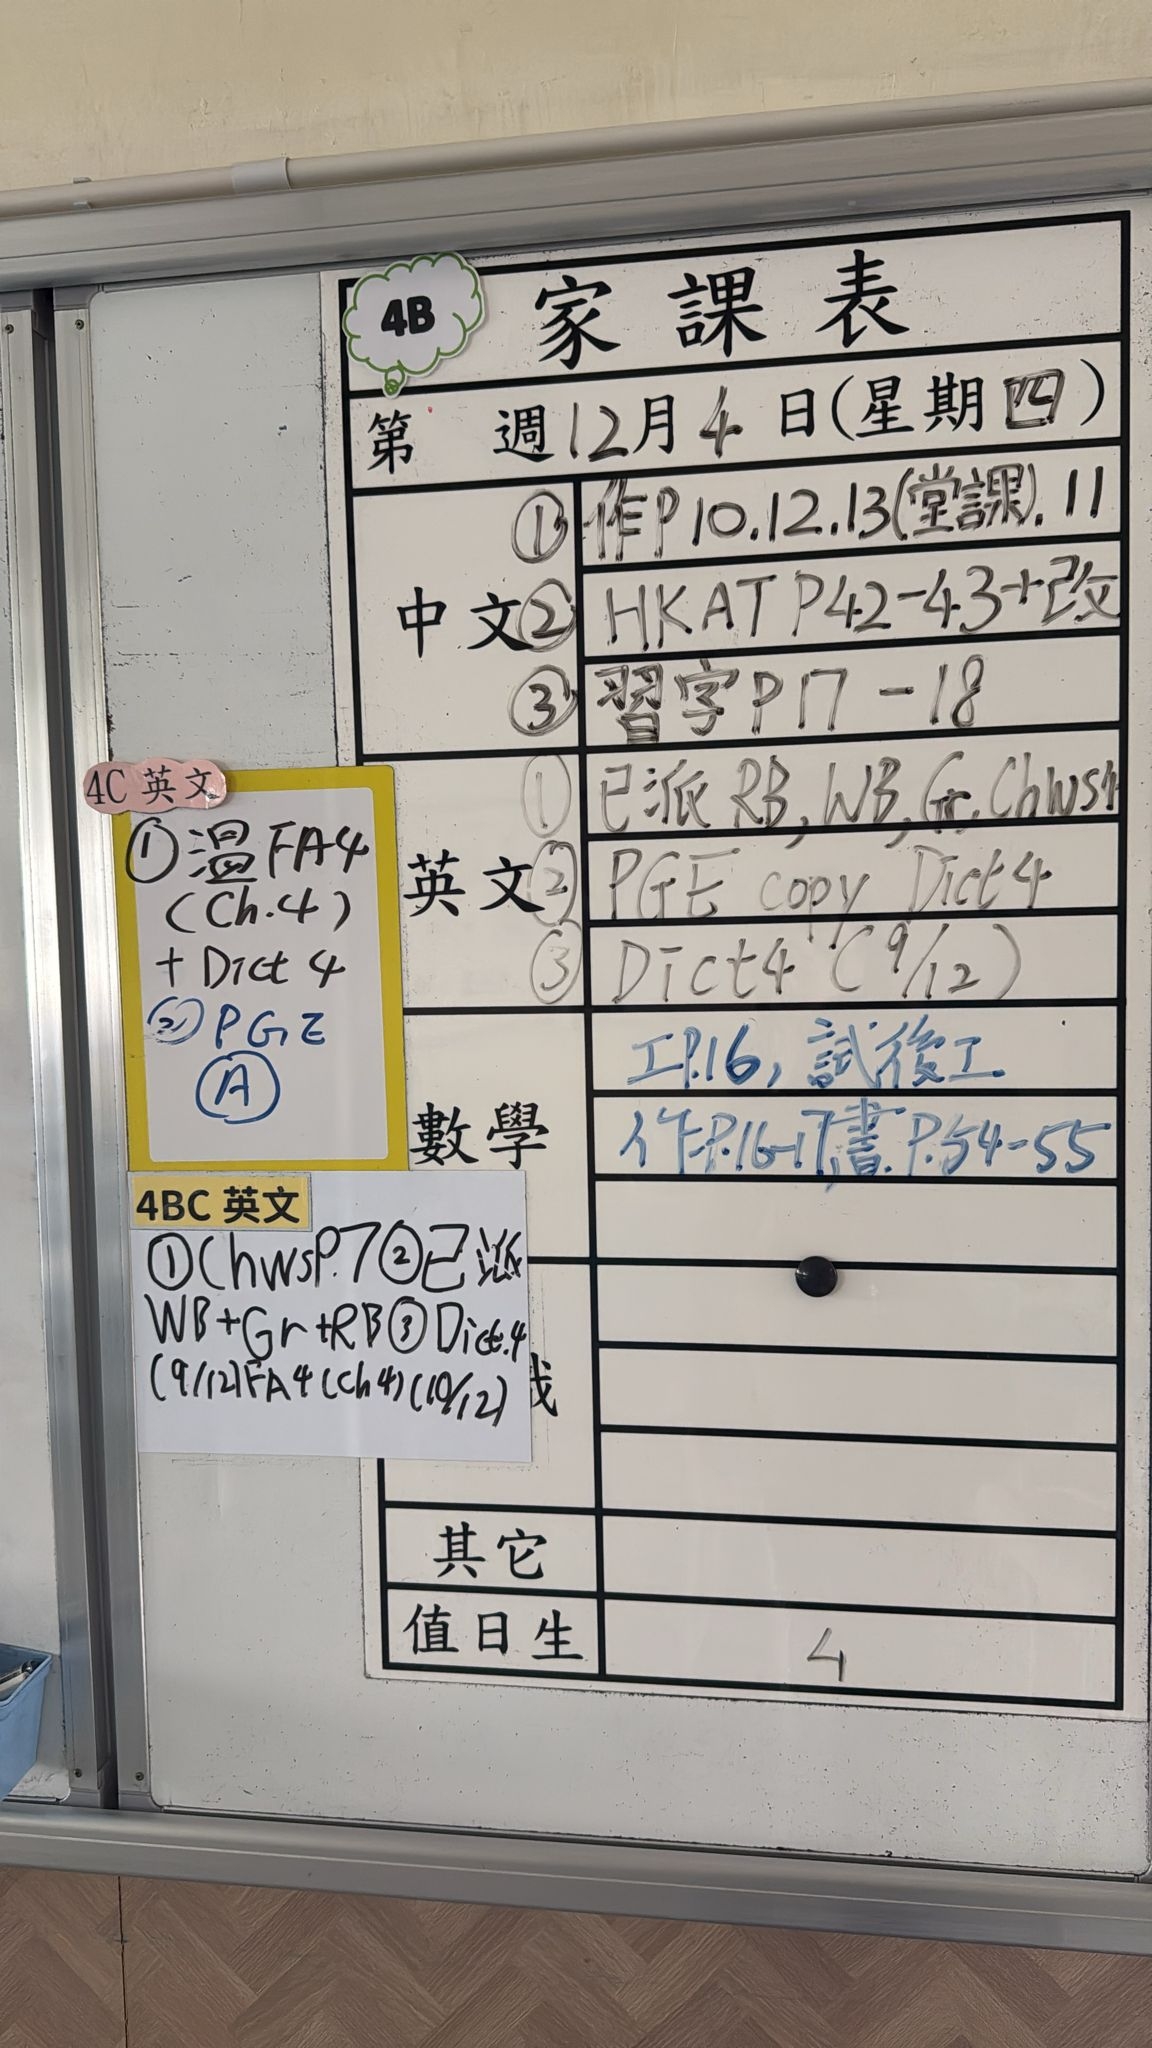 4B
家課表
第 週12月4日(星期四)
中文
①作P10.12.13(堂課).11
②HKAT P42-43+改
③習字P17-18
英文
①已派RB, WB, Gr, Chws
②PGE copy Dict4
③Dict4 (9/12)
數學
工P.16, 試後工
作P.16-17,書.P.54-55
其它
值日生
4
4C 英文
①溫FA4
(Ch.4)
+ Dict 4
②PGE
Ⓐ
4BC 英文
①ChwsP.7②已派
WB+Gr+RB③Dict.4
(9/12)FA4(Ch4)(10/12)